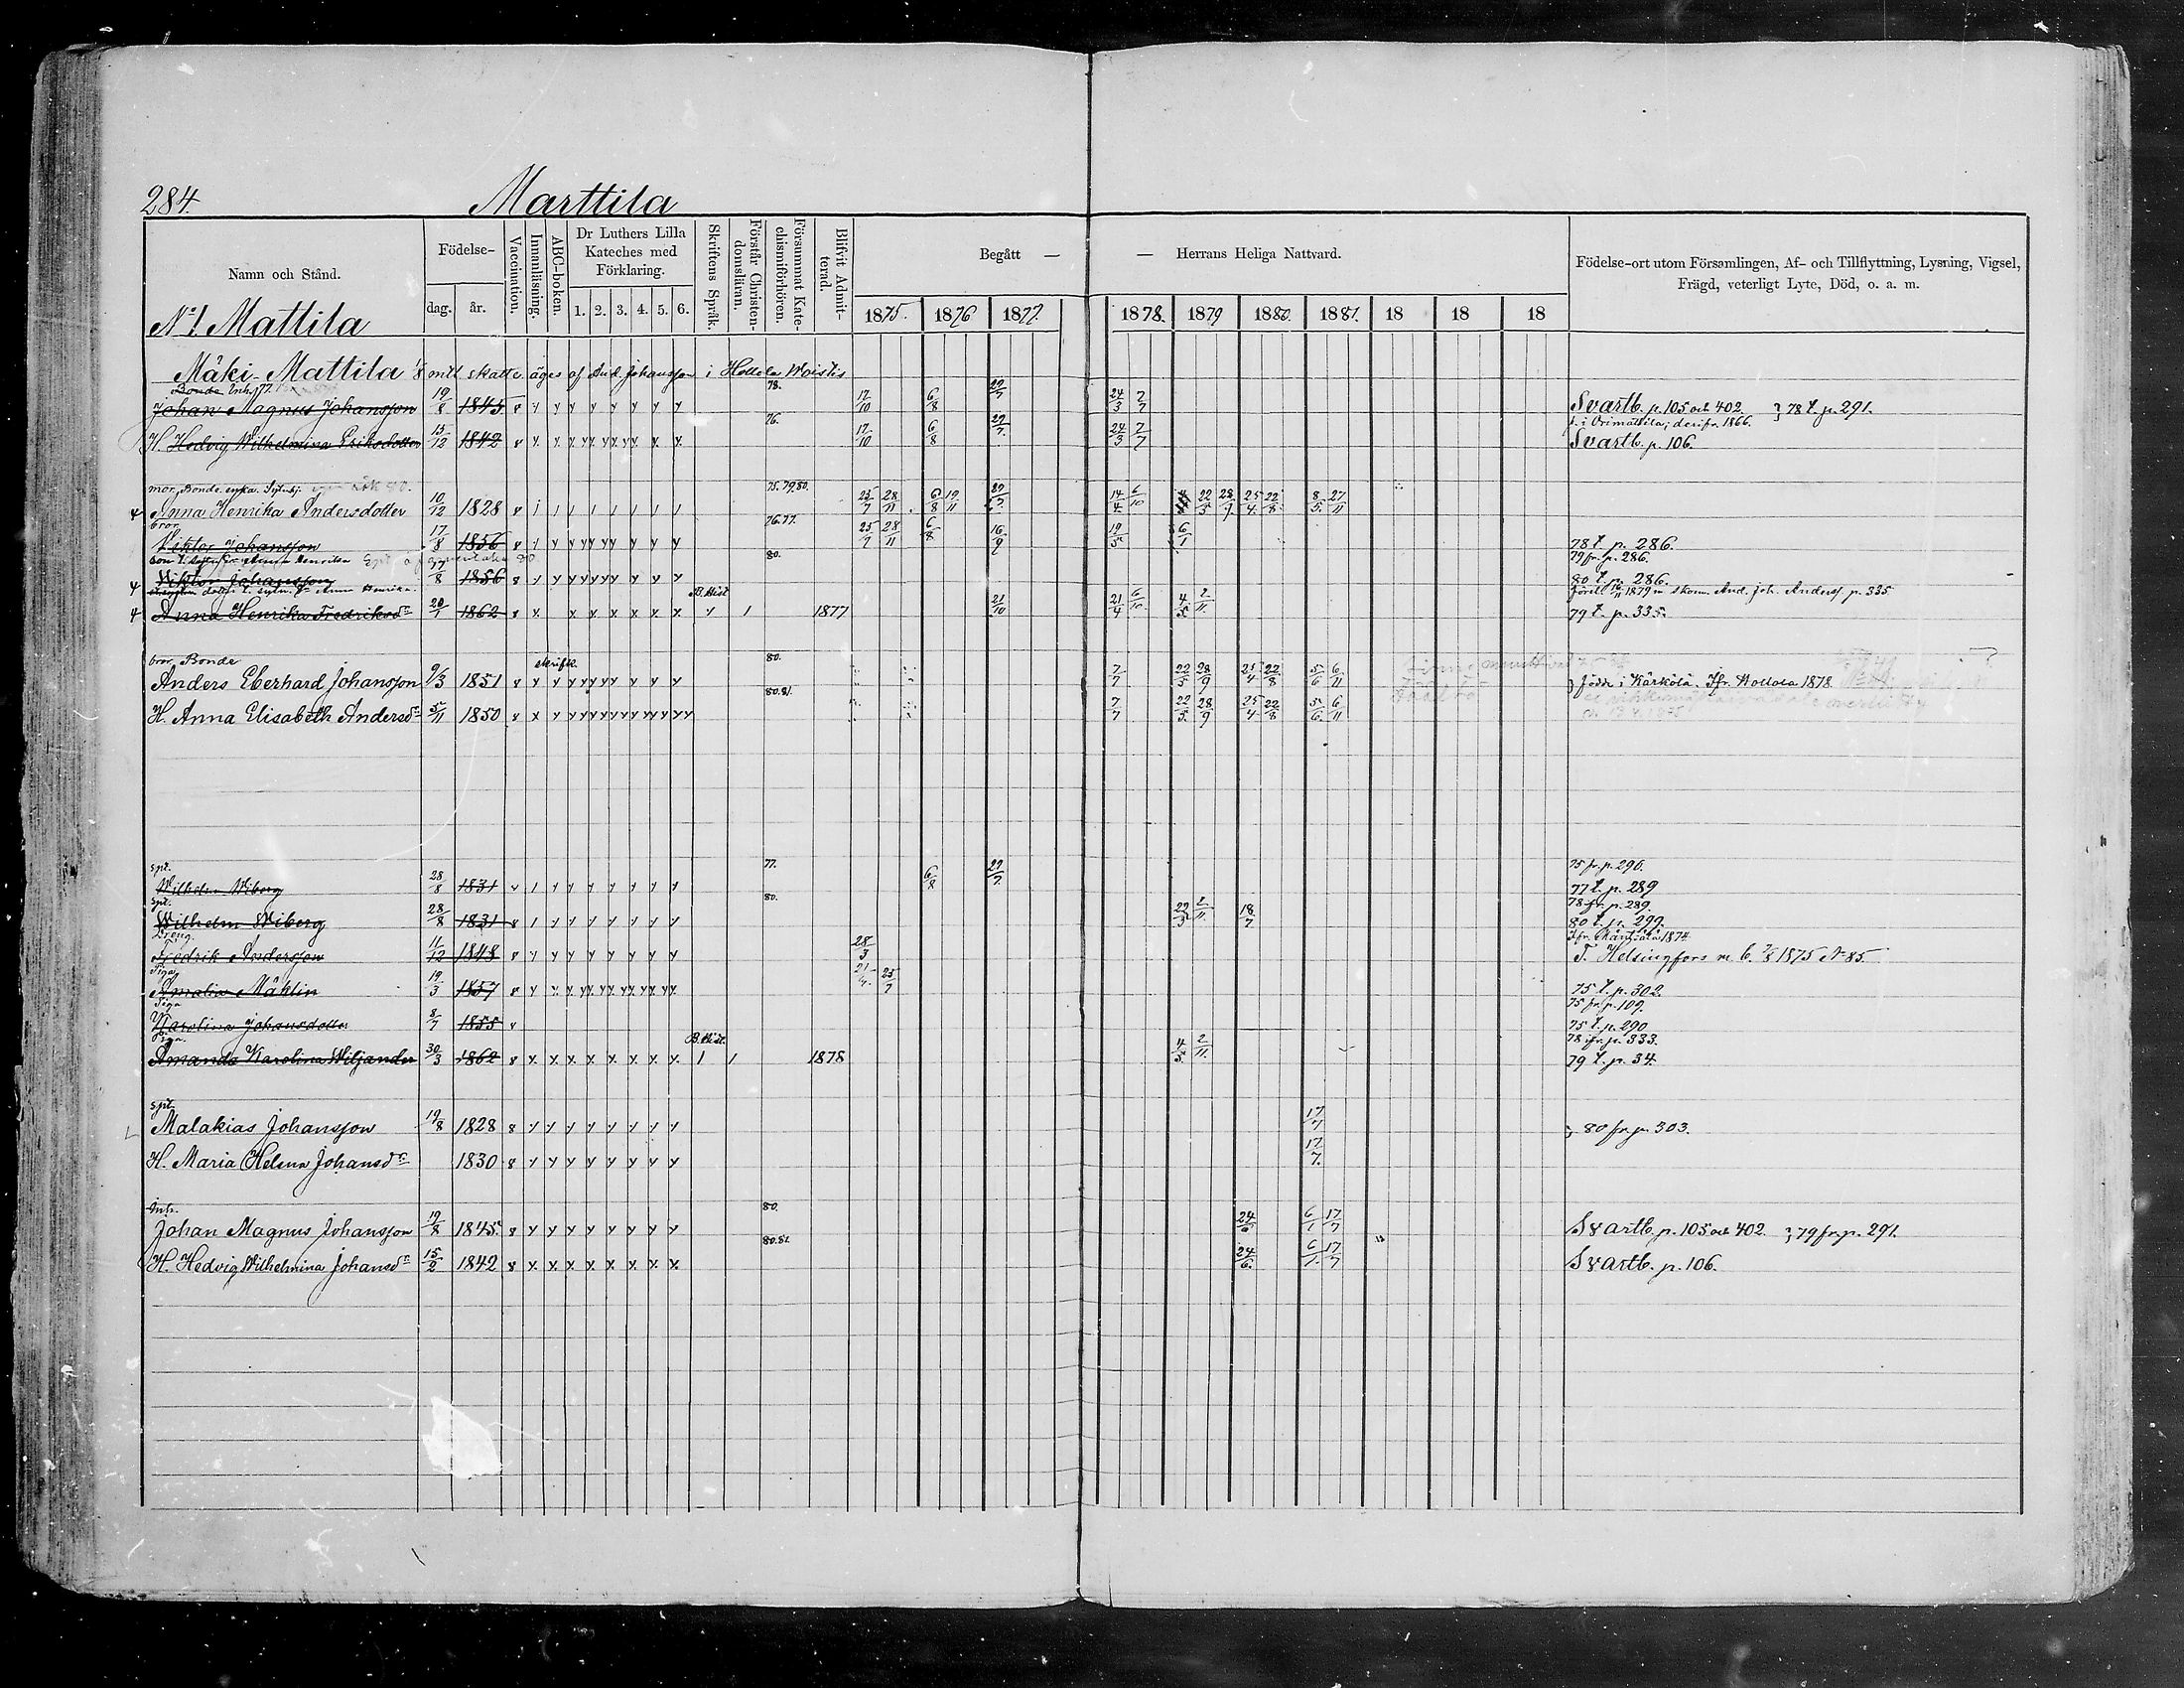 284.
Marttila
Namn och Stånd.
Födelse-
dag.
år.
Vaccination.
Innanläsning.
ABC-boken.
Dr Luthers Lilla
Kateches med
Förklaring.
1. 2. 3. 4. 5. 6.
Skriftens Språk.
Förstår Christen-
domsläran.
Försummat Kate-
chismiförhören.
Blifvit Admit-
terad.
Begått — — Herrans Heliga Nattvard.
1875. 1876 1877. 1878. 1879 1880. 1881. 18 18 18
Födelse-ort utom Församlingen, Af- och Tillflyttning, Lysning, Vigsel,
Frägd, veterligt Lyte, Död, o. a. m.
No 1. Mattila
Mäki-Mattila 1/8 mtl skatte. äges af And. Johansson i Hollola
Bonde Inh. 77.
Johan Magnus Johansson 19/8 1845 78. 17/10 6/8 29/7 24/3 7/7 Svartb. p. 105 och 402. } 78 t. p. 291.
f. i Orimattila; derifr. 1866.
H. Hedvig Wilhelmina Eriksdotter 15/12 1842 76. 17/10 6/8 29/7. 24/3 7/7 Svartb. p. 106.
mor, Bonde enka. 75. 79. 80.
Anna Henrika Andersdotter 10/12 1828 25/7 28/11 6/8 19/11 29/7. 14/4 6/10 22/5 28/9 25/4 22/8 8/5 27/11
bror
Viktor Johansson 17/8 1856 76. 77. 25/7 28/11 6/8 16/9 19/5 6/1 78 t. p. 286.
79 fr. p. 286.
Viktor Johansson 17/8 1856 80. 80 t. p. 286.
B. Hist.
Anna Henrika Fredriksdr 20/1 1862 1877 21/10 21/4 6/10 4/5 2/11. 79 t. p. 335.
bror, Bonde skrifk. 80.
Anders Eberhard Johansson 9/3 1851 7/7 22/5 28/9 25/4 22/8 5/6 6/11 } född i Kärkölä. Ifr. Hollola 1878.
80. 81.
H. Anna Elisabeth Andersdr 5/11 1850 7/7 22/5. 28/9 25/4 22/8 5/6. 6/11
spt. 77. 75 fr. p. 290.
Wilhelm Wiberg 28/8 1831 6/8 29/7. 77 t. p. 289
spt. 80. 78 fr. p. 289.
Wilhelm Wiberg 28/8 1831 22/5 2/11. 18/7 80 t. p. 297.
Dräng.
Fredrik Andersson 11/12 1848 28/3 T. Helsingfors m. b. 7/8 1875 No 85.
Piga
Amalia Mäklin 19/3 1857 25/7 75 t. p. 302.
Piga 75 fr. p. 109.
Karolina Johansdotter 8/7 1855 75 t. p. 290
Piga. B. Hist. 78 ifr. p. 333.
Amanda Karolina Wiljander 30/3 1862 1878 4/5 2/11. 79 t. p. 34.
spt.
Malakias Johansson 19/8 1828 17/7 } 80 fr. p. 303.
H. Maria Helena Johansdr 1830 17/7.
Inh. 80.
Johan Magnus Johansson 19/8 1845. 24/6 6/1 17/7 Svartb. p. 105 och 402. } 79 fr. p. 291.
80. 81.
H. Hedvig Wilhelmina Johansdr 15/2 1842 24/6. 6/1. 17/7 Svartb. p. 106.